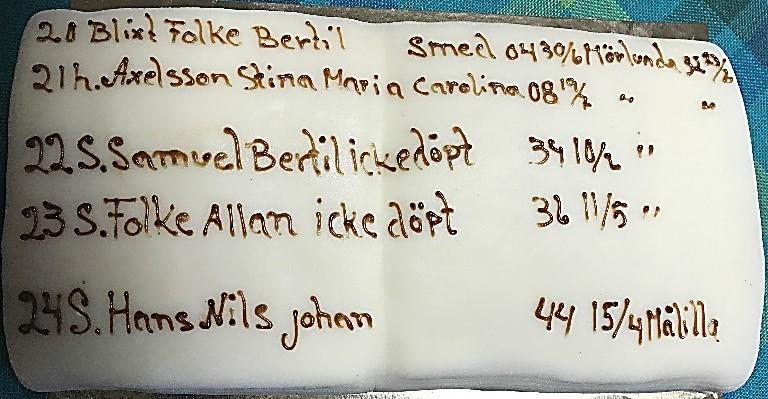 20 Blixt Folke Bertil Smed 04 30/6 Mörlunda 32 23/6
21 h. Axelsson Stina Maria Carolina 08 19/2 " "
22 S. Samuel Bertil icke döpt 34 10/2 "
23 S. Folke Allan icke döpt 36 11/5 "
24 S. Hans Nils johan 44 15/4 Målilla